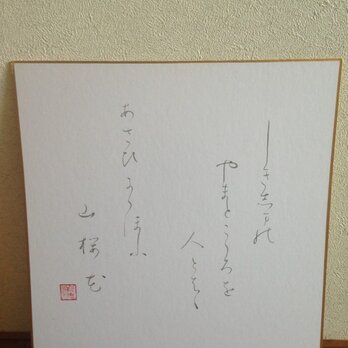 しき志万の
やまとこゝろを
人とはゝ
あさひにゝほふ
山桜花